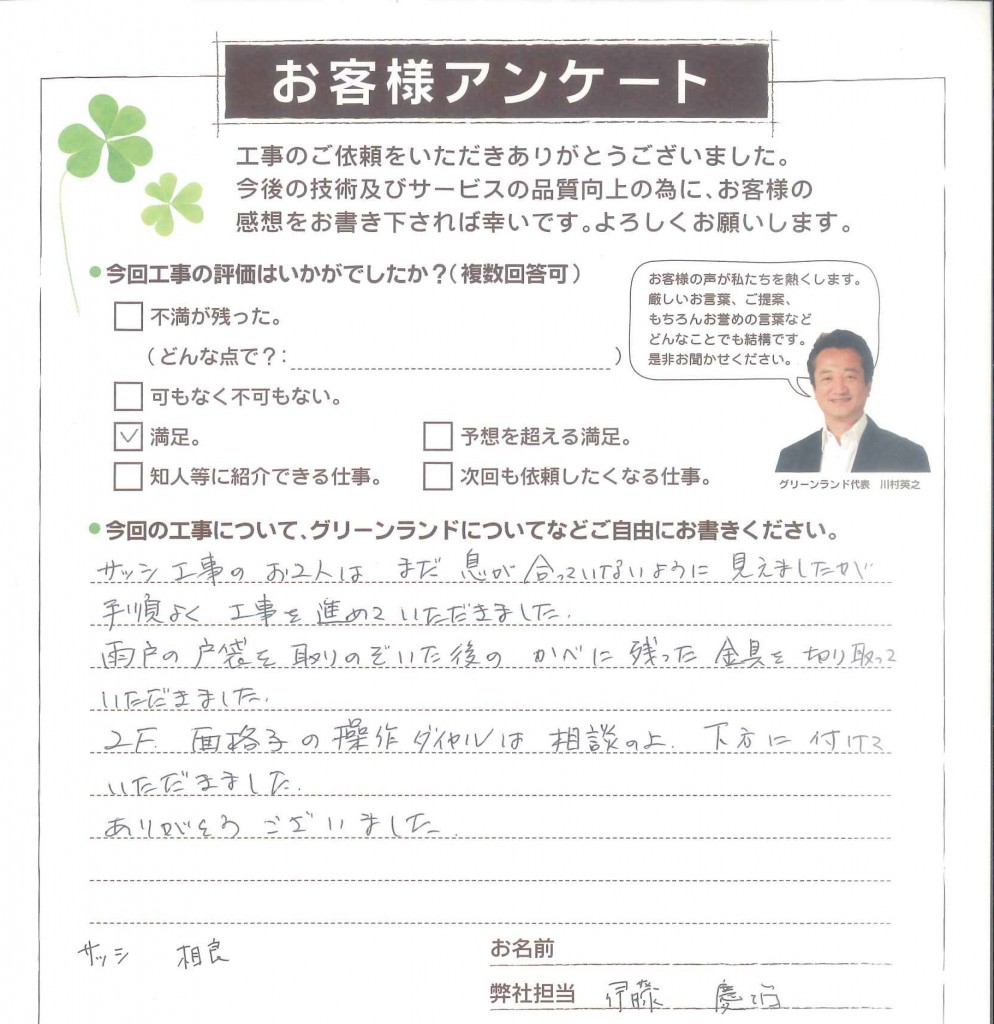 お客様アンケート
工事のご依頼をいただきありがとうございました。
今後の技術及びサービスの品質向上の為に、お客様の
感想をお書き下されば幸いです。よろしくお願いします。
今回工事の評価はいかがでしたか？（複数回答可）
不満が残った。
（どんな点で？：　）
可もなく不可もない。
満足。
予想を超える満足。
知人等に紹介できる仕事。
次回も依頼したくなる仕事。
お客様の声が私たちを熱くします。
厳しいお言葉、ご提案、
もちろんお誉めの言葉など
どんなことでも結構です。
是非お聞かせください。
グリーンランド代表　川村英之
今回の工事について、グリーンランドについてなどご自由にお書きください。
サッシ工事のお2人は まだ 息が合っていないように 見えましたが
手順よく 工事を進めていただきました.
雨戸の戸袋を取りのぞいた後の かべに残った金具を切り取って
いただきました.
2F. 面格子の操作ダイヤルは 相談の上. 下方に付けて
いただきました.
ありがとう ございました.
サッシ 相良
お名前
弊社担当 伊藤 慶治